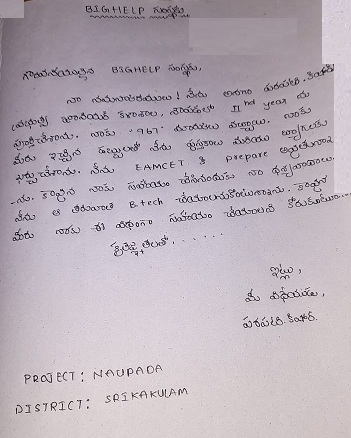 BIGHELP సంస్థకు
గౌరవనీయులైన BIGHELP సంస్థకు,
నా నమస్కారములు! నేను
ప్రభుత్వ జూనియర్ కళాశాల, IInd year ను
పూర్తిచేశాను. నాకు "967" మార్కులు వచ్చాయి. నాకు
మీరు ఇచ్చిన డబ్బులతో నేను పుస్తకాలు మరియు
ఖర్చుచేశాను. నేను EAMCET కి prepare అవుతున్నా
-ను. నాకు సహాయం చేసినందుకు నా ధన్యవాదాలు.
నేను ఆ తరువాత B.tech చేయాలనుకుంటున్నాను.
మీరు నాకు ఈ విధంగా సహాయం చేయాలని కోరుకుంటూ....
కృతజ్ఞతలతో......
ఇట్లు,
మీ విధేయుడు,
PROJECT: NAUPADA
DISTRICT: SRIKAKULAM